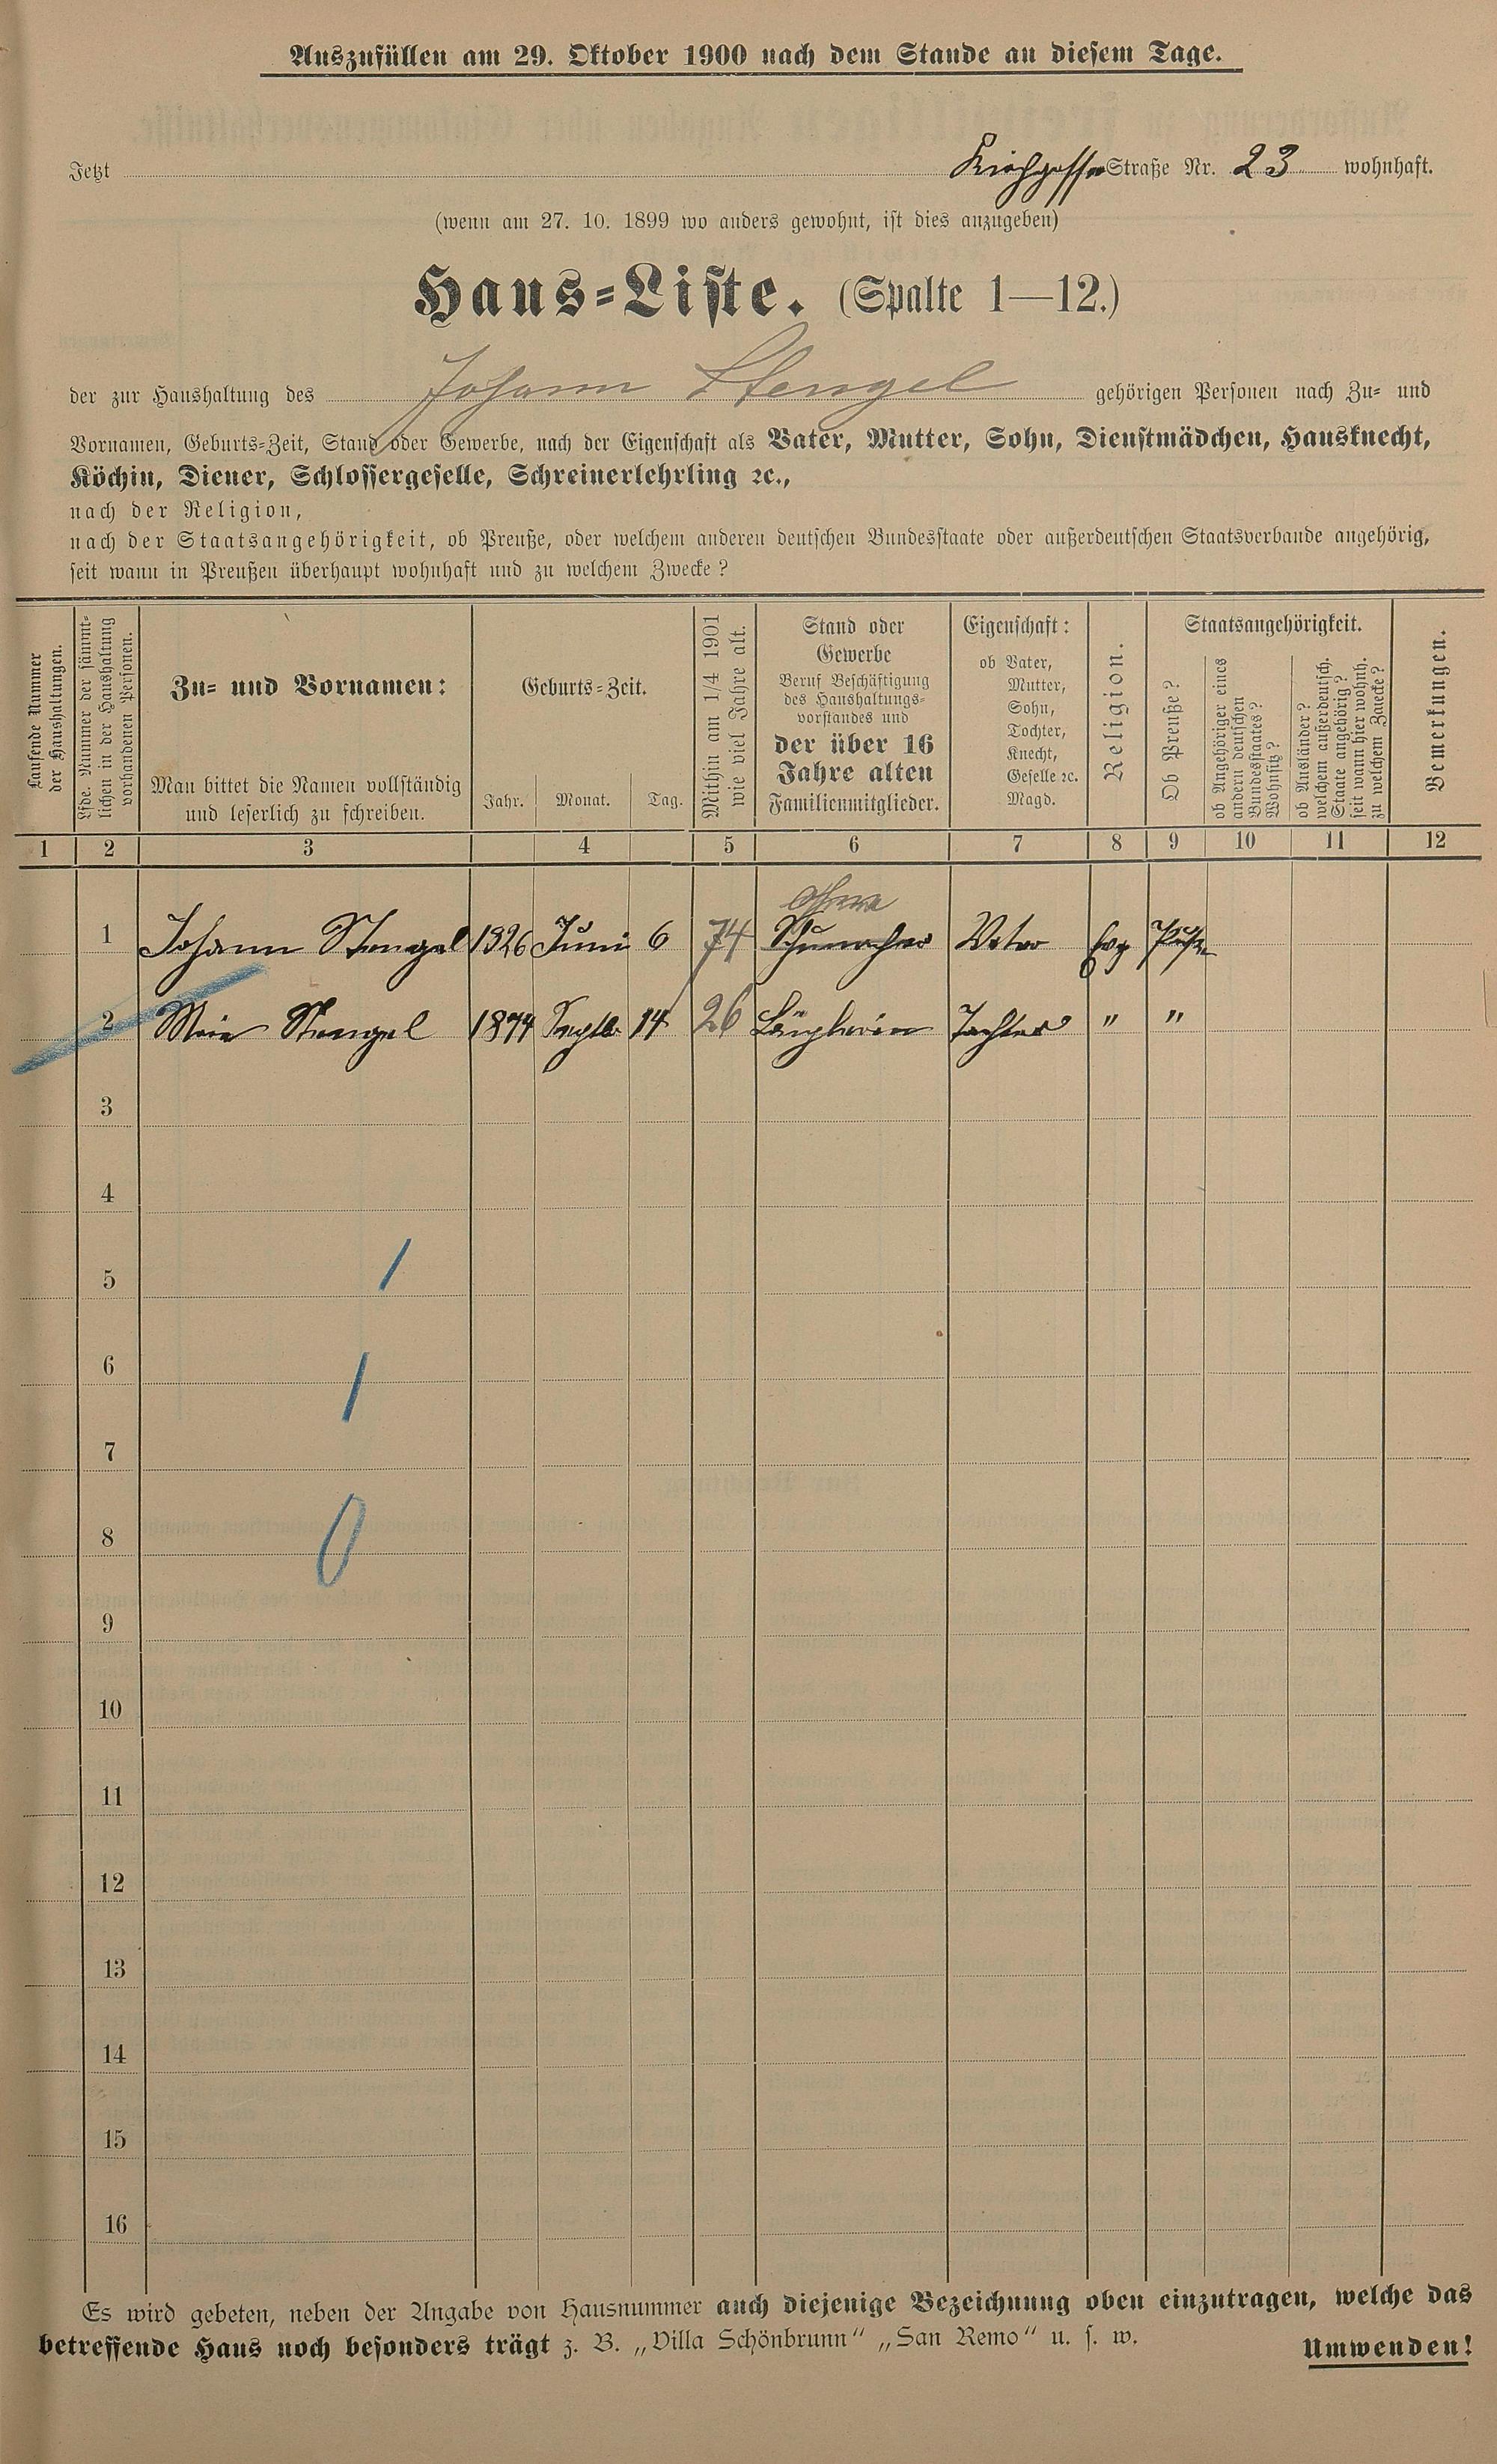 Auszufüllen am 29. Oktober 1900 nach dem Stande an diesem Tage.
Jetzt Kirchgasse Straße Nr. 23 wohnhaft.
(wenn am 27. 10. 1899 wo anders gewohnt, ist dies anzugeben)
Haus-Liste. (Spalte 1—12.)
der zur Haushaltung des Johann Stengel gehörigen Personen nach Zu- und
Vornamen, Geburts-Zeit, Stand oder Gewerbe, nach der Eigenschaft als Vater, Mutter, Sohn, Dienstmädchen, Hausknecht,
Köchin, Diener, Schlossergeselle, Schreinerlehrling ꝛc.,
nach der Religion,
nach der Staatsangehörigkeit, ob Preuße, oder welchem anderen deutschen Bundesstaate oder außerdeutschen Staatsverbande angehörig,
seit wann in Preußen überhaupt wohnhaft und zu welchem Zwecke?
Laufende Nummer
der Haushaltungen.
Lfde. Nummer der sämmt-
lichen in der Haushaltung
vorhandenen Personen.
Zu- und Vornamen:
Man bittet die Namen vollständig
und leserlich zu schreiben.
Geburts-Zeit.
Jahr. Monat. Tag.
Mithin am 1/4 1901
wie viel Jahre alt.
Stand oder
Gewerbe
Beruf Beschäftigung
des Haushaltungs-
vorstandes und
der über 16
Jahre alten
Familienmitglieder.
Eigenschaft:
ob Vater,
Mutter,
Sohn,
Tochter,
Knecht,
Geselle ꝛc.
Magd.
Religion.
Staatsangehörigkeit.
Ob Preuße?
ob Angehöriger eines
andern deutschen
Bundesstaates?
Wohnsitz?
ob Ausländer?
welchem außerdeutsch.
Staate angehörig?
seit wann hier wohnh.
zu welchem Zwecke?
Bemerkungen.
1 2 3 4 5 6 7 8 9 10 11 12
1 Johann Stengel 1826 Juni 6 74 Schumacher Vater Evg
2 Stengel 1874 Septb. 14 26 Tochter " "
3
4
5
6
7
8
9
10
11
12
13
14
15
16
Es wird gebeten, neben der Angabe von Hausnummer auch diejenige Bezeichnung oben einzutragen, welche das
betreffende Haus noch besonders trägt z. B. „Villa Schönbrunn“ „San Remo“ u. s. w. Umwenden!